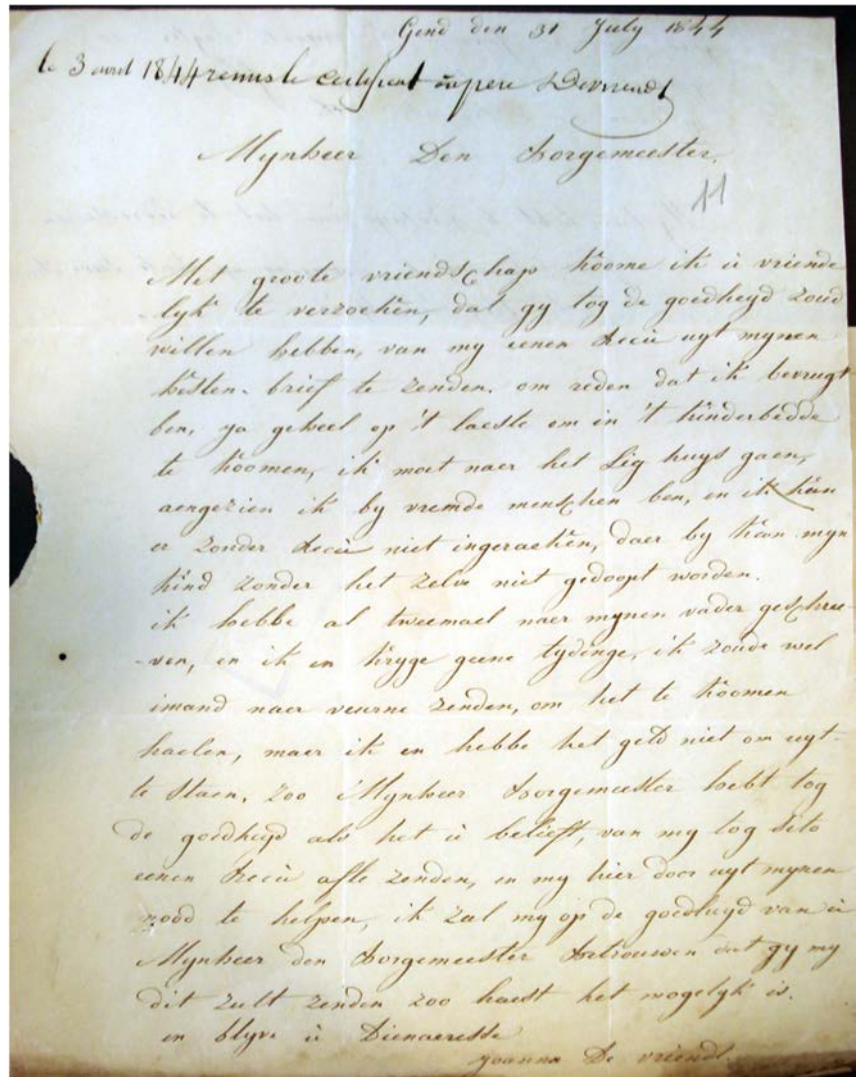 Gend den 31 July 1844
le 3 avril 1844 remis le certificat au pere Devriendt
Mynheer Den Borgemeester,
11
Met groote vriendschap koome ik ù vriende
lyk te verzoeken, dat gy tog de goedheyd zoud
willen hebben, van my eenen Recù uyt mynen
brief te zenden. om reden dat ik bevrugt
ben, ja geheel op 't laeste om in 't kinderbedde
te koomen, ik moet naer het Lig huys gaen,
aengezien ik by vremde menschen ben, en ik kan
er zonder Recù niet ingeraeken, daer by kan myn
kind zonder het zelve niet gedoopt worden.
ik hebbe al tweemael naer mynen vader geschree-
-ven, en ik en kryge geene tydinge, ik zoude wel
imand naer veurne zenden, om het te koomen
haelen, maer ik en hebbe het geld niet om uyt-
te staen, zoo Mynheer Borgemeester hebt tog
de goedheyd als het ù belieft, van my tog dito
eenen Recù afte zenden, en my hier door uyt mynen
nood te helpen, ik zal my op de goedheyd van ù
Mynheer den Borgemeester betrouwen dat gy my
dit zult zenden zoo haest het mogelyk is.
en blyve ù Dienaeresse
joanna De vriendt.